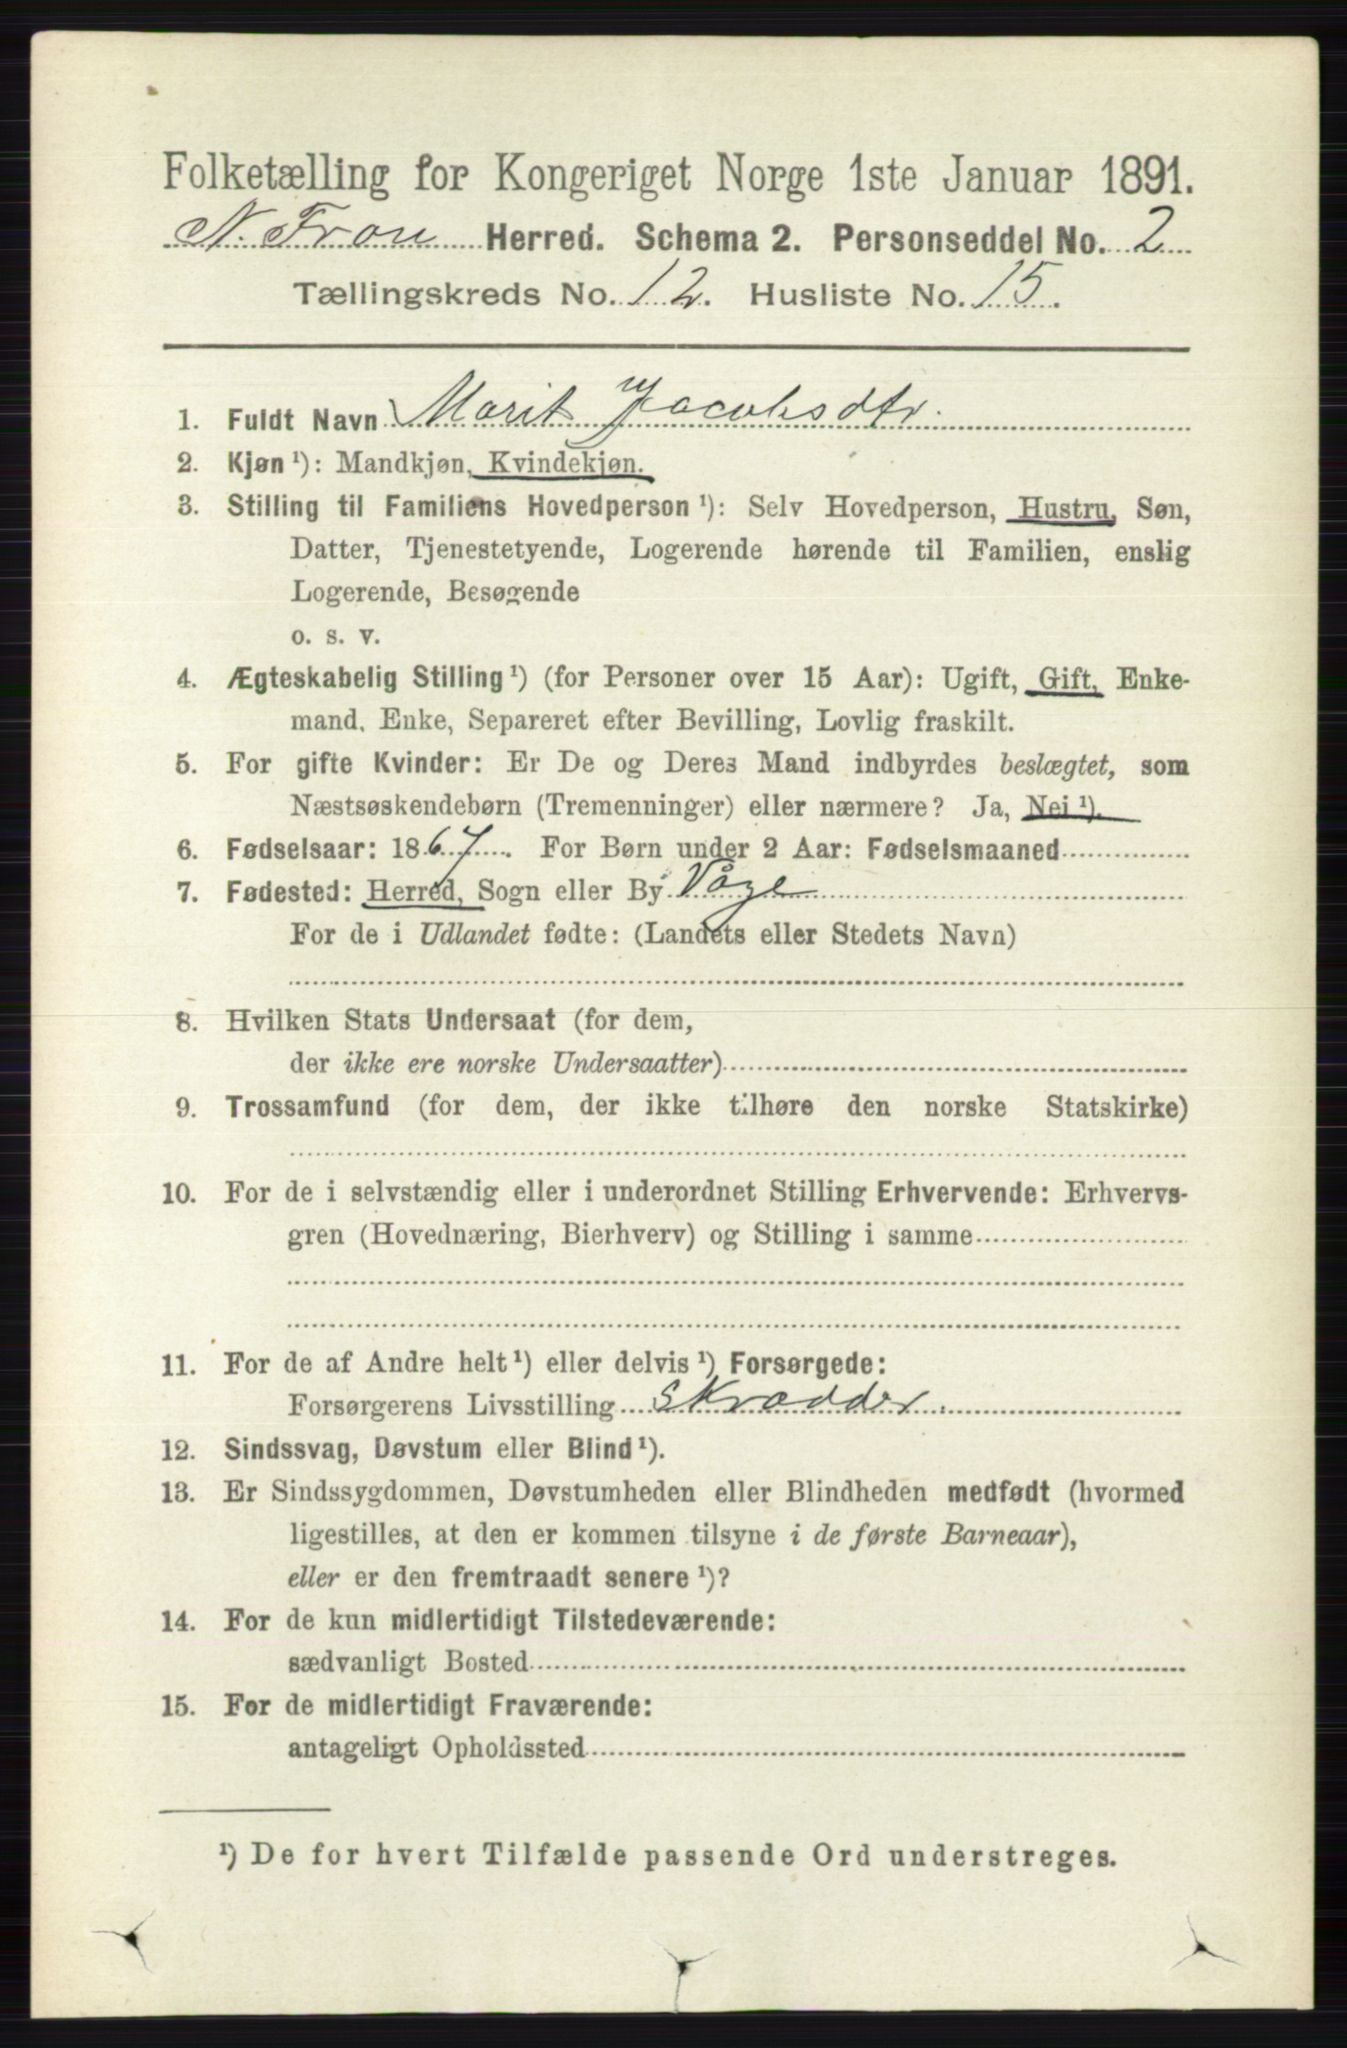 Folketælling for Kongeriget Norge 1ste Januar 1891.
N. Fron Herred. Schema 2. Personseddel No. 2
Tællingskreds No. 12. Husliste No. 15.
1. Fuldt Navn Marit Jacobsdtr.
2. Kjøn ¹): Mandkjøn, Kvindekjøn.
3. Stilling til Familiens Hovedperson ¹): Selv Hovedperson, Hustru, Søn,
Datter, Tjenestetyende, Logerende hørende til Familien, enslig
Logerende, Besøgende
o. s. v.
4. Ægteskabelig Stilling ¹) (for Personer over 15 Aar): Ugift, Gift, Enke-
mand, Enke, Separeret efter Bevilling, Lovlig fraskilt.
5. For gifte Kvinder: Er De og Deres Mand indbyrdes beslægtet, som
Næstsøskendebørn (Tremenninger) eller nærmere? Ja, Nei ¹).
6. Fødselsaar: 1867. For Børn under 2 Aar: Fødselsmaaned
7. Fødested: Herred, Sogn eller By Våge
For de i Udlandet fødte: (Landets eller Stedets Navn)
8. Hvilken Stats Undersaat (for dem,
der ikke ere norske Undersaatter)
9. Trossamfund (for dem, der ikke tilhøre den norske Statskirke)
10. For de i selvstændig eller i underordnet Stilling Erhvervende: Erhvervs-
gren (Hovednæring, Bierhverv) og Stilling i samme
11. For de af Andre helt ¹) eller delvis ¹) Forsørgede:
Forsørgerens Livsstilling Skrædder.
12. Sindssvag, Døvstum eller Blind ¹).
13. Er Sindssygdommen, Døvstumheden eller Blindheden medfødt (hvormed
ligestilles, at den er kommen tilsyne i de første Barneaar),
eller er den fremtraadt senere ¹)?
14. For de kun midlertidigt Tilstedeværende:
sædvanligt Bosted
15. For de midlertidigt Fraværende:
antageligt Opholdssted
¹) De for hvert Tilfælde passende Ord understreges.